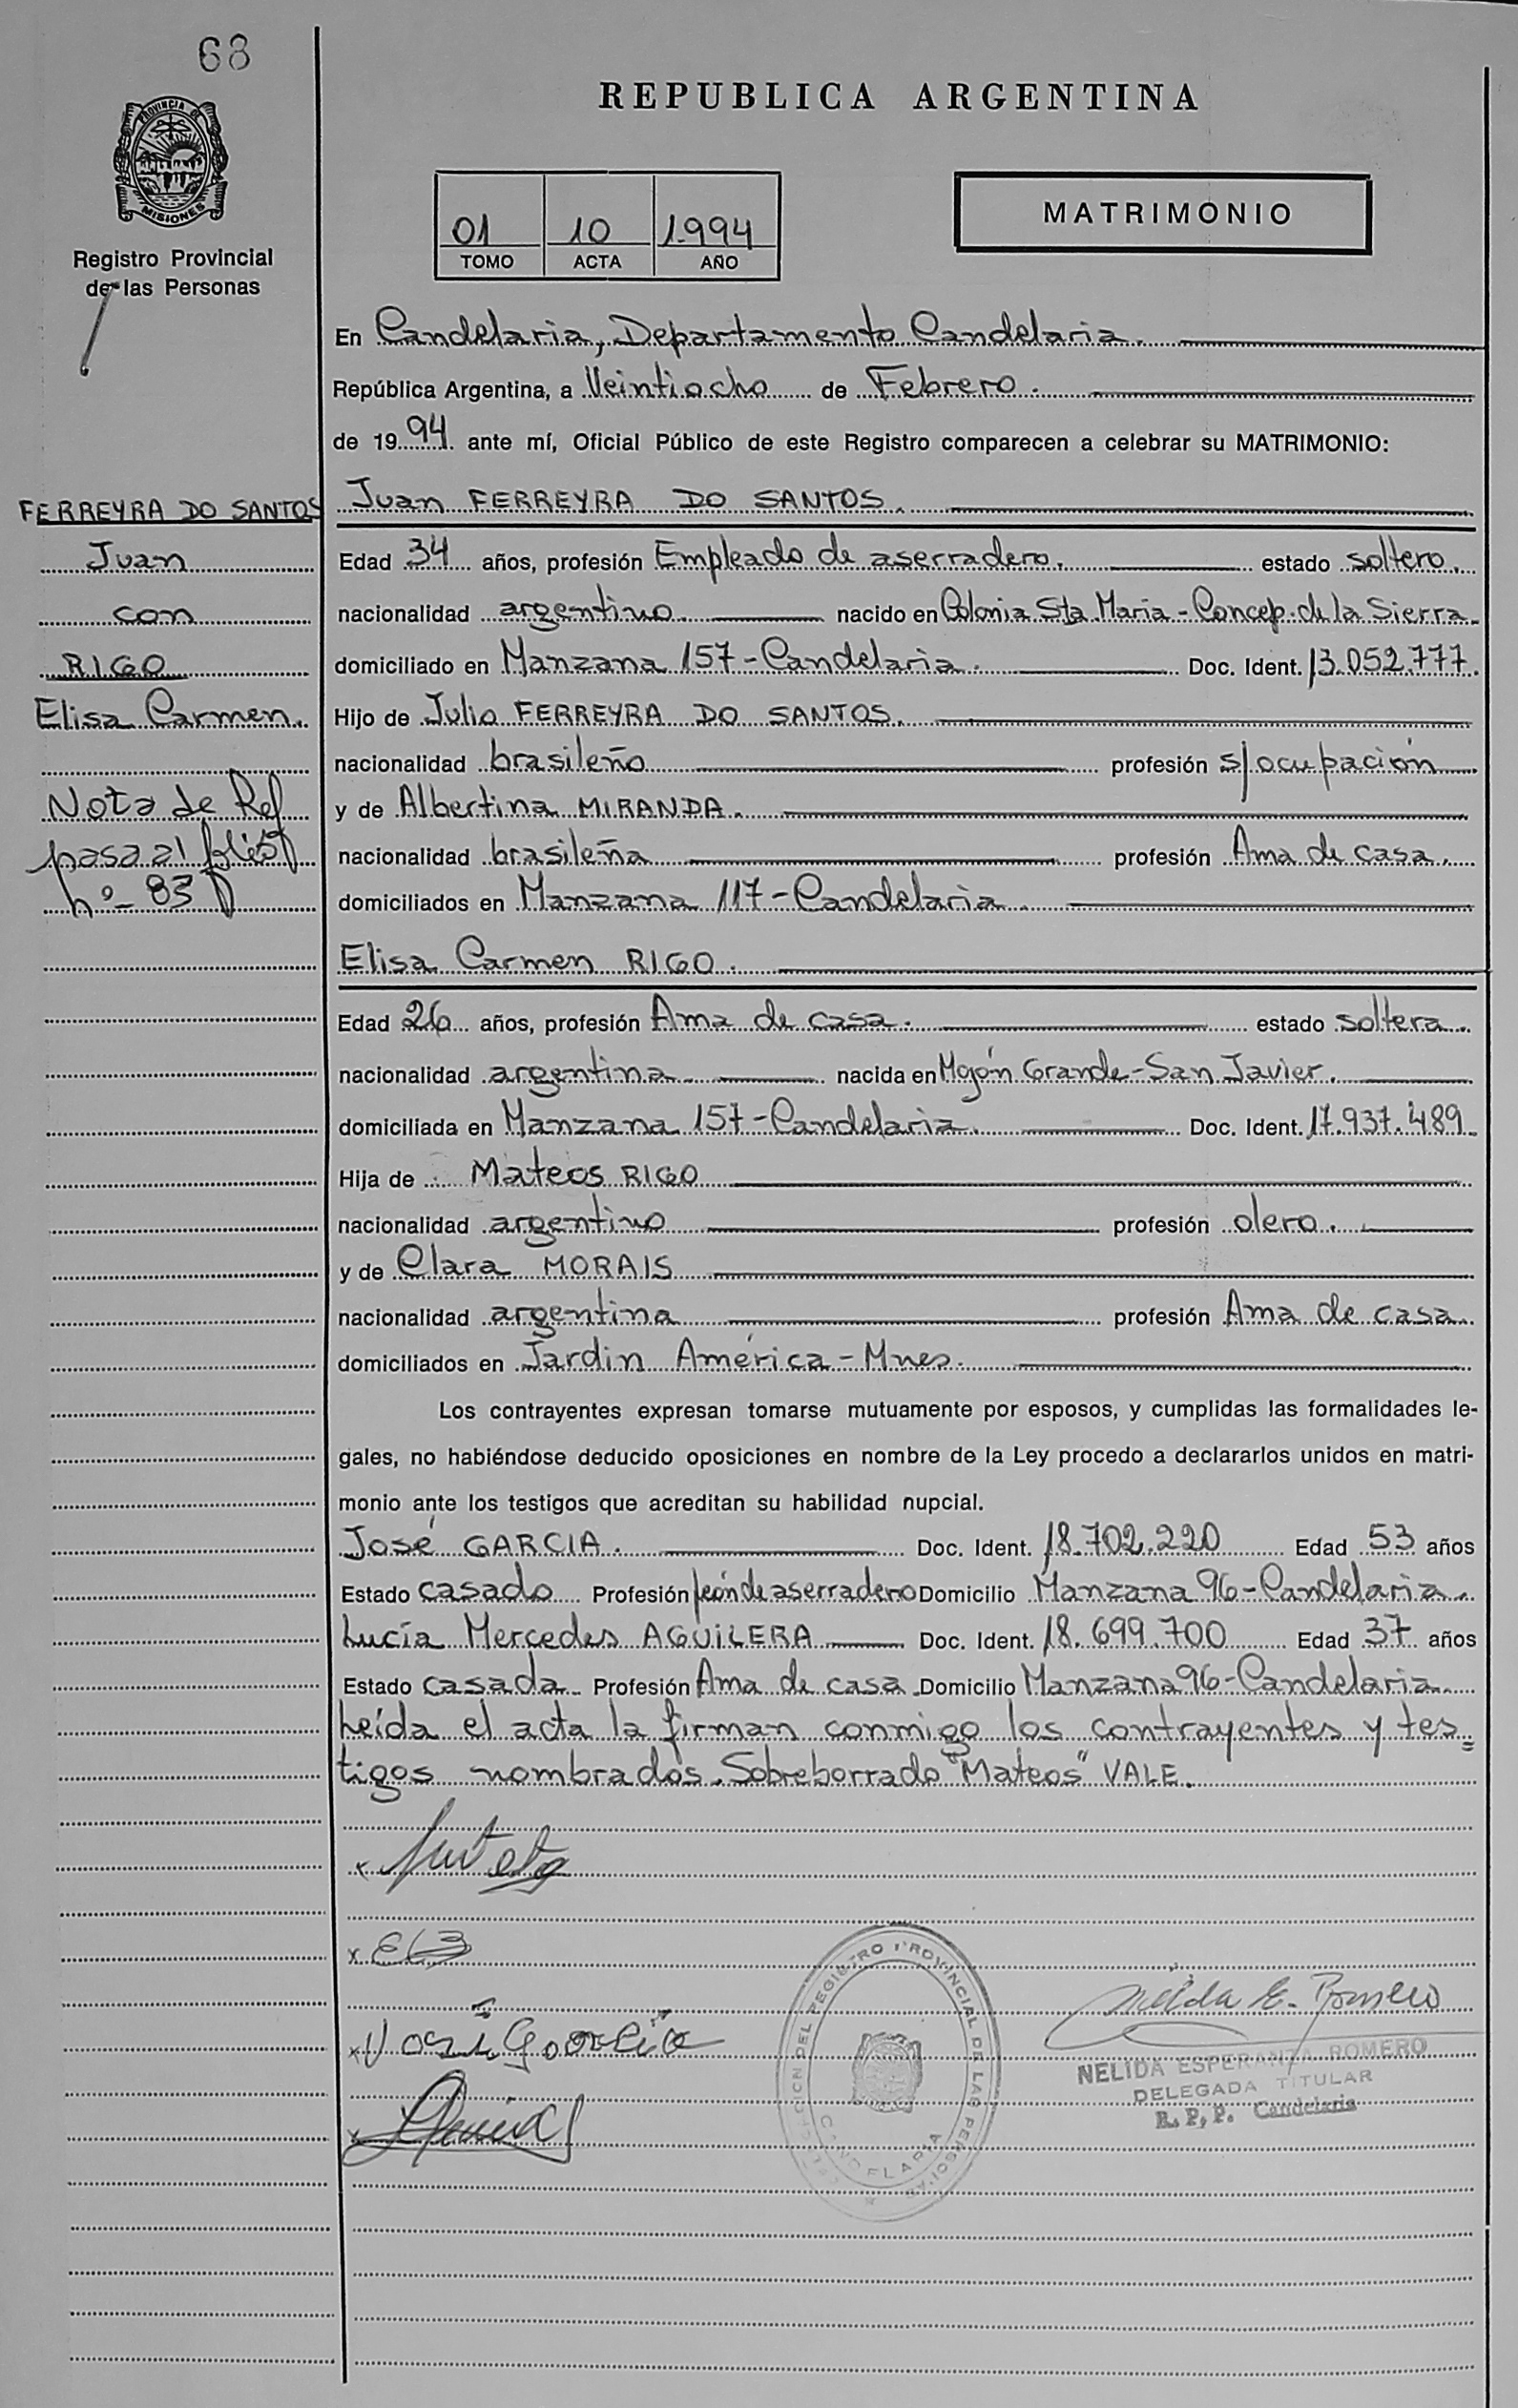 68
PROVINCIA DE
MISIONES
Registro Provincial
de las Personas
FERREYRA DO SANTOS
Juan
con
RIGO
Elisa Carmen.
Nota de Ref
pasa al folio
nº 83
REPUBLICA ARGENTINA
01 10 1.994
TOMO ACTA AÑO
MATRIMONIO
En Candelaria, Departamento Candelaria.
República Argentina, a Veintiocho de Febrero.
de 1994 ante mí, Oficial Público de este Registro comparecen a celebrar su MATRIMONIO:
Juan FERREYRA DO SANTOS.
Edad 34 años, profesión Empleado de aserradero. estado soltero.
nacionalidad argentino. nacido en Colonia Sta Maria - Concep. de la Sierra.
domiciliado en Manzana 157 - Candelaria. Doc. Ident. 13.052.777.
Hijo de Julio FERREYRA DO SANTOS.
nacionalidad brasileño profesión s/ocupación
y de Albertina MIRANDA.
nacionalidad brasileña profesión Ama de casa.
domiciliados en Manzana 117 - Candelaria.
Elisa Carmen RIGO.
Edad 26 años, profesión Ama de casa. estado soltera.
nacionalidad argentina. nacida en Mojón Grande - San Javier.
domiciliada en Manzana 157 - Candelaria. Doc. Ident. 17.937.489.
Hija de Mateos RIGO
nacionalidad argentino profesión olero.
y de Clara MORAIS
nacionalidad argentina profesión Ama de casa.
domiciliados en Jardín América - Mnes.
Los contrayentes expresan tomarse mutuamente por esposos, y cumplidas las formalidades le-
gales, no habiéndose deducido oposiciones en nombre de la Ley procedo a declararlos unidos en matri-
monio ante los testigos que acreditan su habilidad nupcial.
José GARCIA. Doc. Ident. 18.702.220 Edad 53 años
Estado casado Profesión peón de aserradero Domicilio Manzana 96 - Candelaria.
Lucía Mercedes AGUILERA Doc. Ident. 18.699.700 Edad 37 años
Estado casada Profesión Ama de casa Domicilio Manzana 96 - Candelaria.
Leída el acta la firman conmigo los contrayentes y tes=
tigos nombrados. Sobreborrado "Mateos" VALE.
x
x
x José Garcia
x
DELEGACION DEL REGISTRO PROVINCIAL DE LAS PERSONAS
CANDELARIA
Nélida E. Romero
NELIDA ESPERANZA ROMERO
DELEGADA TITULAR
R. P. P. Candelaria